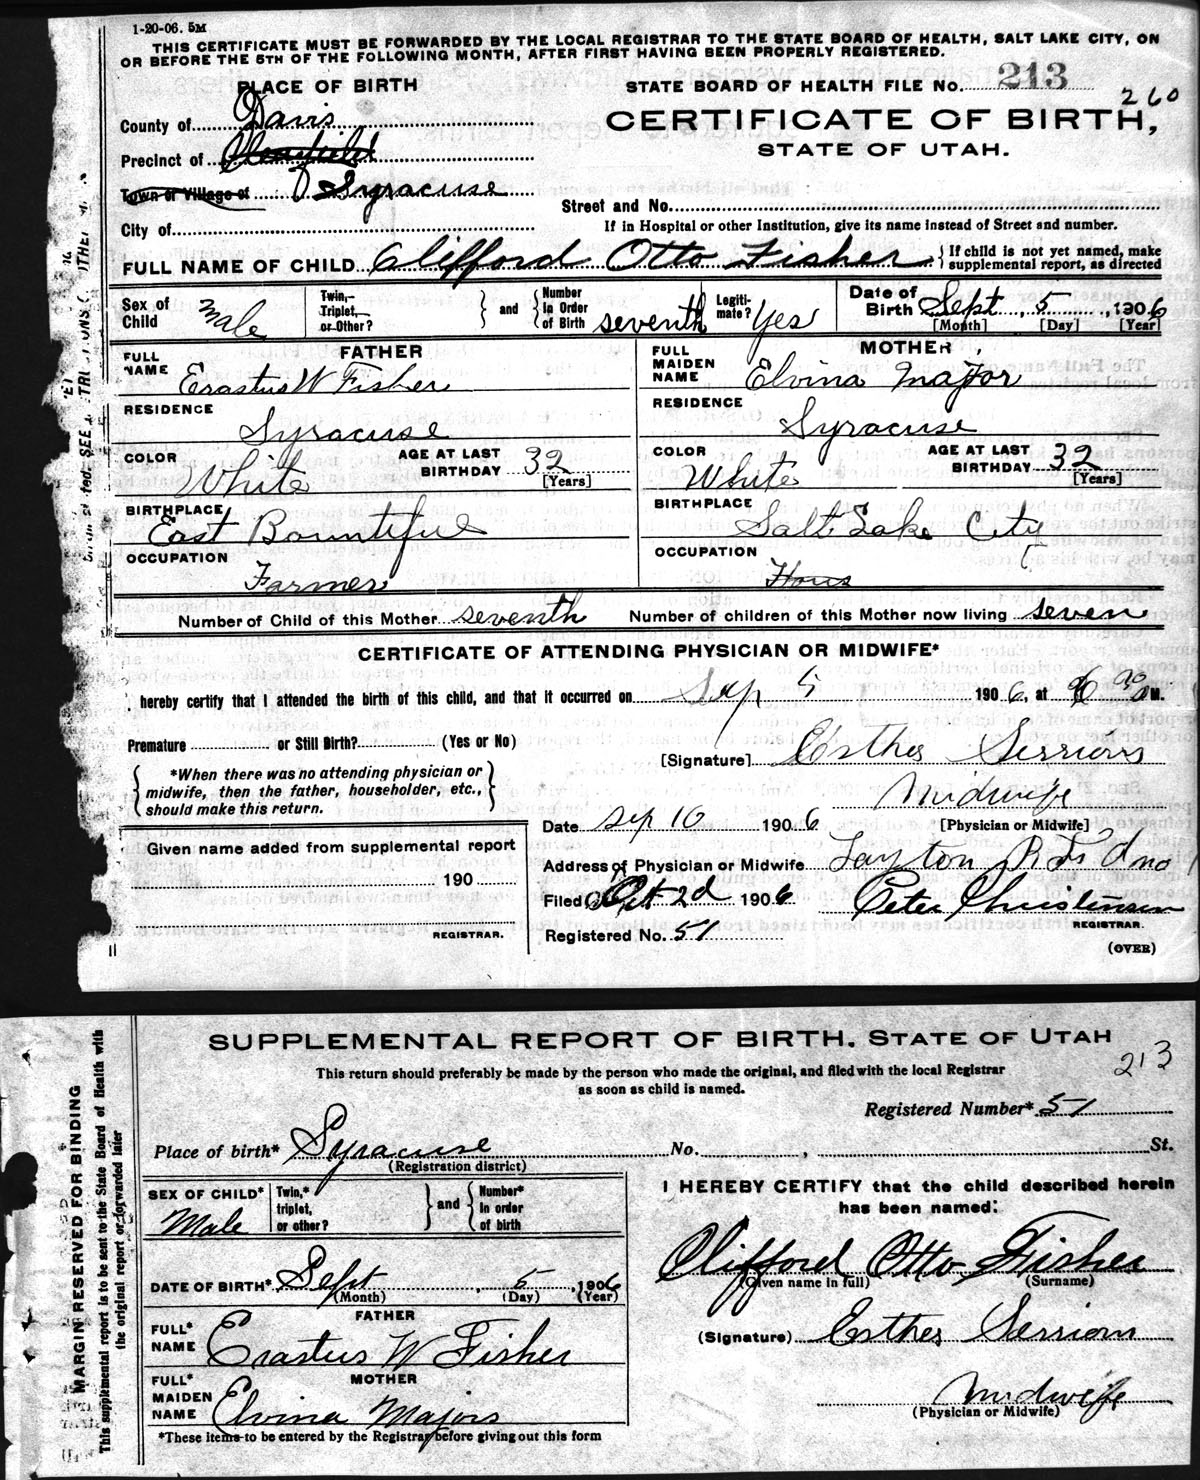 1-20-06. 5M
THIS CERTIFICATE MUST BE FORWARDED BY THE LOCAL REGISTRAR TO THE STATE BOARD OF HEALTH, SALT LAKE CITY, ON
OR BEFORE THE 5TH OF THE FOLLOWING MONTH, AFTER FIRST HAVING BEEN PROPERLY REGISTERED.
PLACE OF BIRTH
STATE BOARD OF HEALTH FILE No. 213
260
County of Davis
CERTIFICATE OF BIRTH,
Precinct of Clearfield
STATE OF UTAH.
Town or Village of Syracuse
Street and No.
City of
If in Hospital or other Institution, give its name instead of Street and number.
FULL NAME OF CHILD Clifford Otto Fisher { If child is not yet named, make
supplemental report, as directed
Sex of Child Male
Twin,
Triplet,
or Other?
and
Number
in Order
of Birth seventh
Legiti-
mate? Yes
Date of
Birth Sept 5, 1906
[Month] [Day] [Year]
FATHER
FULL NAME Erastus W Fisher
RESIDENCE
Syracuse
COLOR White
AGE AT LAST
BIRTHDAY 32
[Years]
BIRTHPLACE
East Bountiful
OCCUPATION
Farmer
MOTHER
FULL MAIDEN NAME Elvina Major
RESIDENCE
Syracuse
COLOR White
AGE AT LAST
BIRTHDAY 32
[Years]
BIRTHPLACE
Salt Lake City
OCCUPATION
Hous
Number of Child of this Mother seventh Number of children of this Mother now living seven
CERTIFICATE OF ATTENDING PHYSICIAN OR MIDWIFE*
hereby certify that I attended the birth of this child, and that it occurred on Sep 5 1906, at M.
Premature or Still Birth? (Yes or No)
[Signature] Esther Sessions
*When there was no attending physician or
midwife, then the father, householder, etc.,
should make this return.
Midwife
[Physician or Midwife]
Date Sep 10 1906
Given name added from supplemental report
190
REGISTRAR.
Address of Physician or Midwife Layton R F D no 1
Filed Oct 2d 1906 Peter Christensen
REGISTRAR.
Registered No. 51
(OVER)
11
SUPPLEMENTAL REPORT OF BIRTH. STATE OF UTAH
213
This return should preferably be made by the person who made the original, and filed with the local Registrar
as soon as child is named.
Registered Number* 51
Place of birth* Syracuse No. , St.
(Registration district)
MARGIN RESERVED FOR BINDING
This supplemental report is to be sent to the State Board of Health with
the original report or forwarded later
SEX OF CHILD*
Male
Twin,*
triplet,
or other?
and
Number*
in order
of birth
DATE OF BIRTH* Sept 5, 1906
(Month) (Day) (Year)
FATHER
FULL* NAME Erastus W Fisher
MOTHER
FULL* MAIDEN NAME Elvina Majors
*These items to be entered by the Registrar before giving out this form
I HEREBY CERTIFY that the child described herein
has been named:
Clifford Otto Fisher
(Given name in full) (Surname)
(Signature) Esther Sessions
Midwife
(Physician or Midwife)